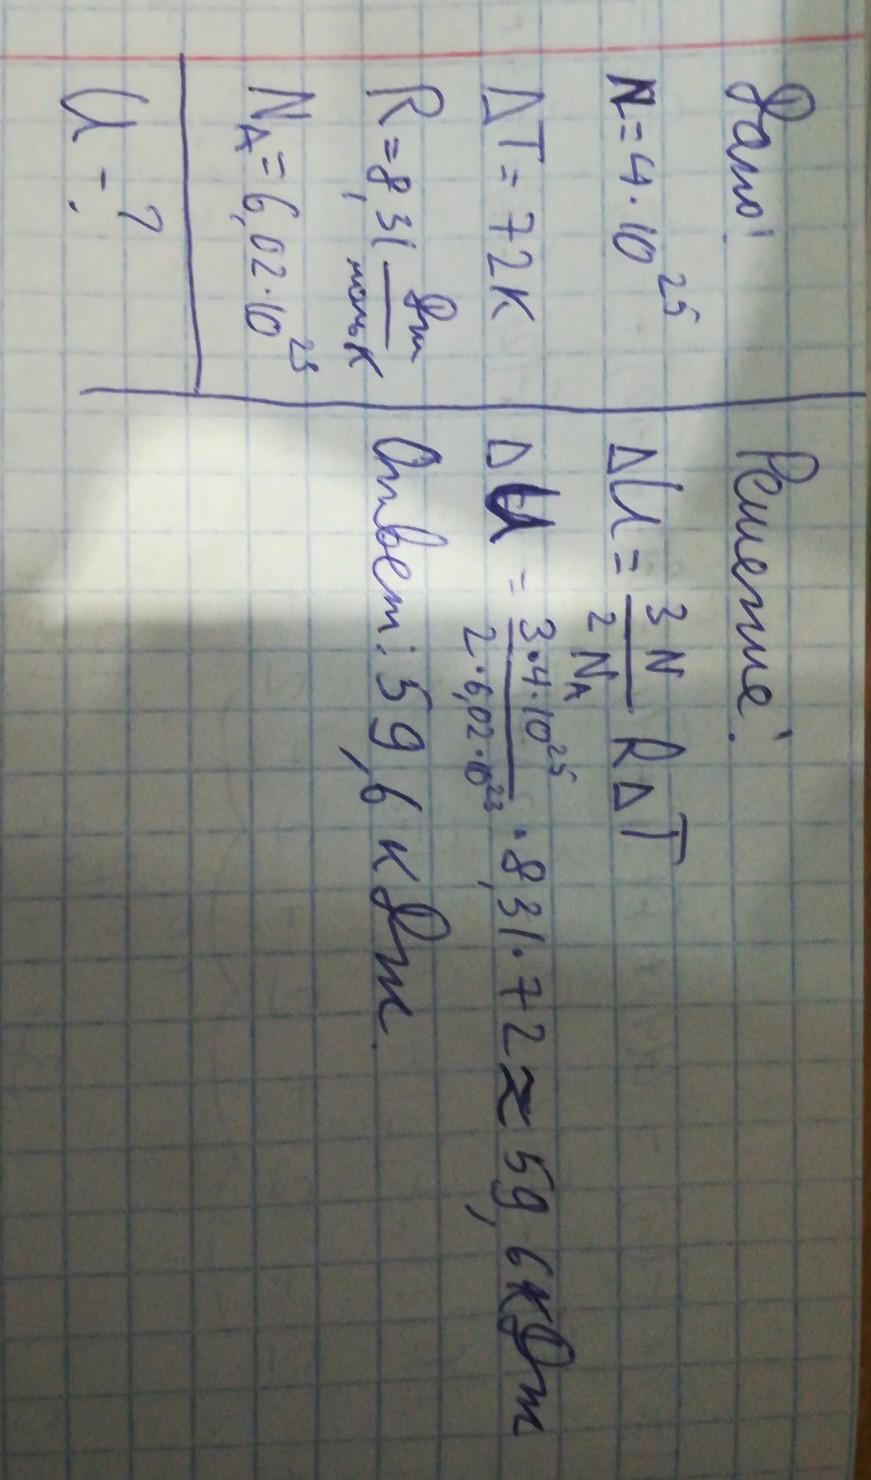 Дано:
N = 4·10²⁵
ΔT = 72К
R = 8,31 Дж/моль·К
N_A = 6,02·10²³
U - ?
Решение:
ΔU = 3N/2N_A RΔT
ΔU = 3·4·10²⁵/2·6,02·10²³ · 8,31·72 ≈ 59,6 кДж
Ответ: 59,6 кДж.